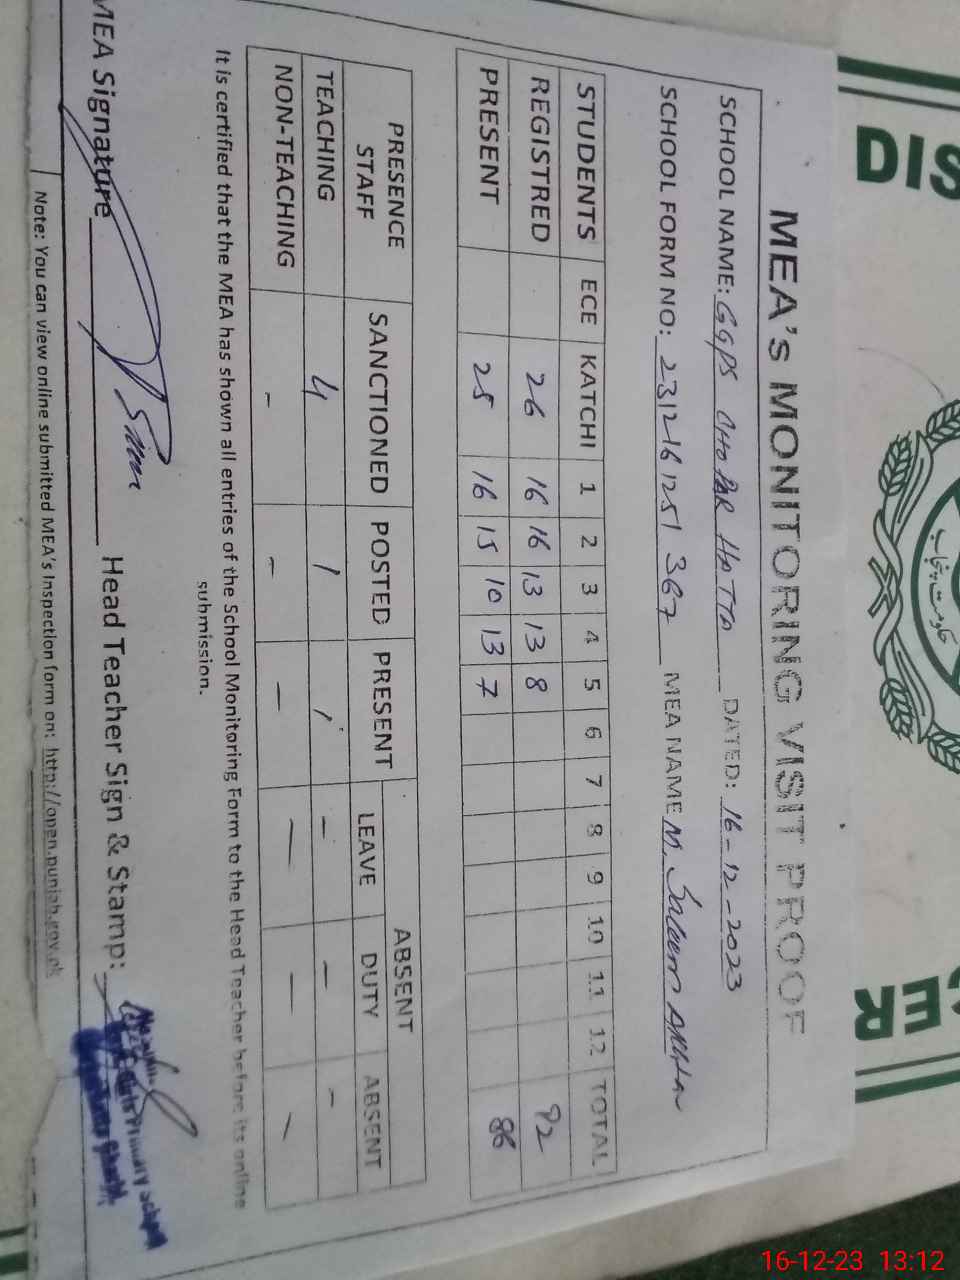 MEA's MONITORING VISIT PROOF
SCHOOL NAME: GGPS CHOPAR HATTA DATED: 16-12-2023
SCHOOL FORM NO: 231216 1251 367 MEA NAME M. Saleem Akhtar
STUDENTS ECE KATCHI 1 2 3 4 5 6 7 8 9 10 11 12 TOTAL
REGISTRED 26 16 16 13 13 8 92
PRESENT 25 16 15 10 13 7 86
PRESENCE STAFF SANCTIONED POSTED PRESENT ABSENT
LEAVE DUTY ABSENT
TEACHING 4 1 1 - - -
NON-TEACHING - - - - - -
It is certified that the MEA has shown all entries of the School Monitoring Form to the Head Teacher before its online
submission.
MEA Signature Head Teacher Sign & Stamp:
Girls Primary School
Note: You can view online submitted MEA's Inspection form on: http://open.punjab.gov.pk
DIS
CER
حکومت پنجاب
16-12-23 13:12